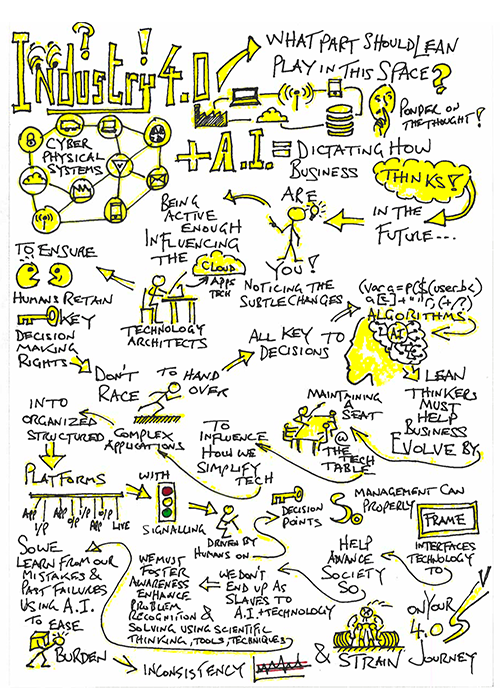 Industry 4.0
? !
WHAT PART SHOULD LEAN
PLAY IN THIS SPACE?
PONDER ON
THE THOUGHT!
CYBER
PHYSICAL
SYSTEMS
+ A.I. = DICTATING HOW
BUSINESS
THINKS!
IN THE
FUTURE...
ARE
YOU!
NOTICING THE
SUBTLE CHANGES
BEING
ACTIVE
ENOUGH
INFLUENCING
THE
CLOUD
APPS
TECH
TECHNOLOGY
ARCHITECTS
TO ENSURE
HUMANS RETAIN
KEY
DECISION
MAKING
RIGHTS
DON'T
RACE
TO HAND
OVER
ALL KEY TO
DECISIONS
ALGORITHMS
A.I
LEAN
THINKERS
MUST
HELP
BUSINESS
EVOLVE BY
MAINTAINING
A
SEAT
@
THE
TECH
TABLE
TO
INFLUENCE
HOW WE
SIMPLIFY
TECH
COMPLEX
APPLICATIONS
INTO
ORGANIZED
STRUCTURED
PLATFORMS
LIVE
WITH
SIGNALLING
DRIVEN BY
HUMANS ON
DECISION
POINTS
SO
MANAGEMENT CAN
PROPERLY
FRAME
INTERFACES
TECHNOLOGY
TO
HELP
ADVANCE
SOCIETY
SO
WE DON'T
END UP AS
SLAVES TO
A.I. + TECHNOLOGY
WE MUST
FOSTER
AWARENESS
ENHANCE
PROBLEM
RECOGNITION &
SOLVING USING SCIENTIFIC
THINKING, TOOLS, TECHNIQUES
SO WE
LEARN FROM OUR
MISTAKES &
PAST FAILURES
USING A.I.
TO EASE
BURDEN
INCONSISTENCY
& STRAIN
ON YOUR
4.0
JOURNEY